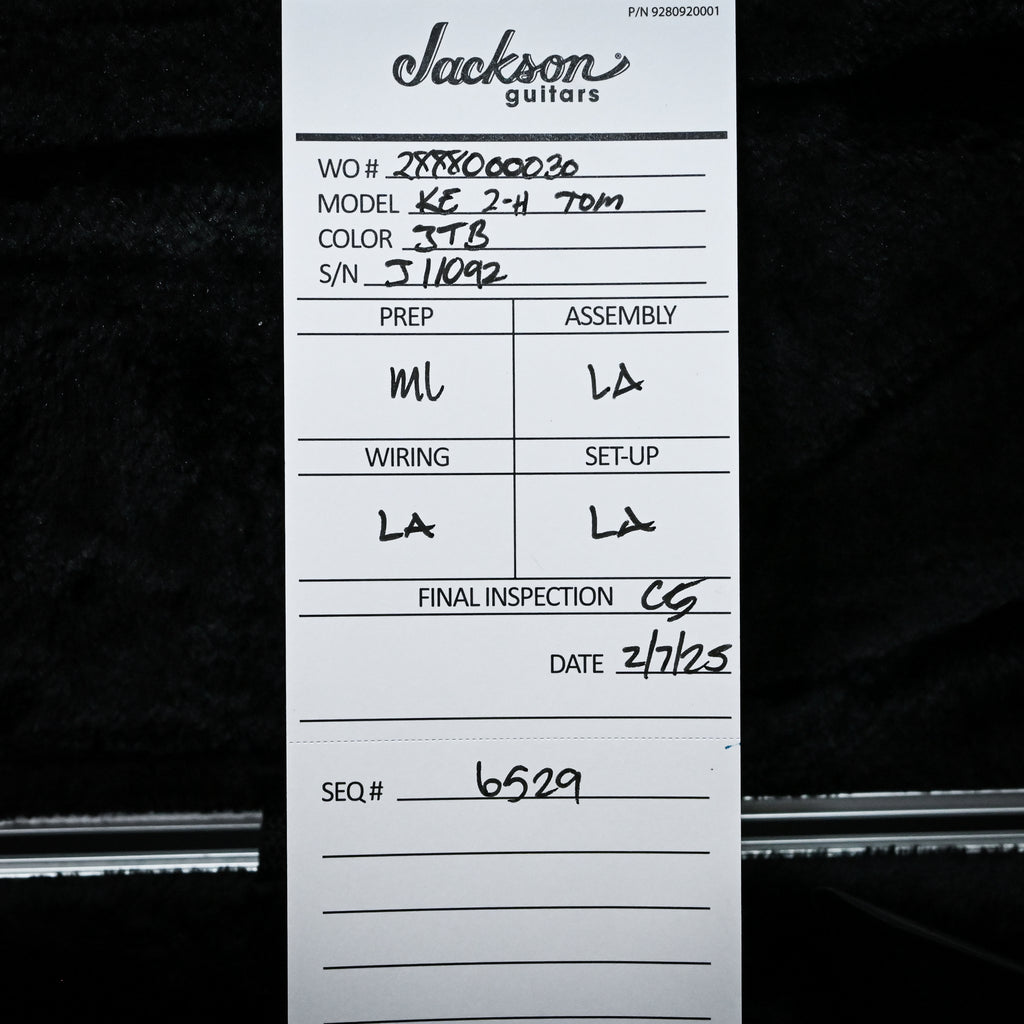 P/N 9280920001
Jackson
guitars
WO # 2888000030
MODEL KE 2-H TOM
COLOR JTB
S/N J11092
PREP ASSEMBLY
ML LA
WIRING SET-UP
LA LA
FINAL INSPECTION CG
DATE 2/7/25
SEQ # 6529